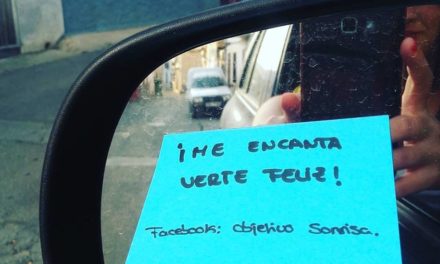 ¡ME ENCANTA
VERTE FELIZ!
Facebook: Objetivo Sonrisa.